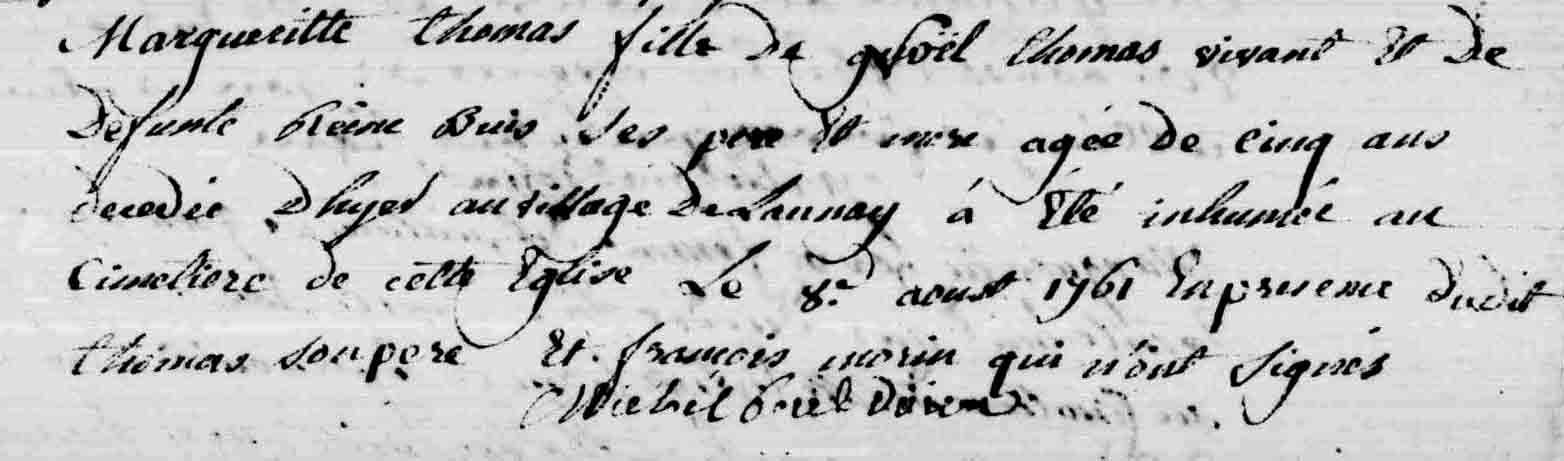 Margueritte thomas fille De Noël thomas vivant Et De
Defunte Reine Buis Ses pere Et mere agée De cinq ans
decedée D'hyer au village De Launay á Eté inhumée au
Cimetiere de cette Eglise Le 8e aoust 1761 En presence dudit
thomas son pere Et. françois morin qui n'ont Signés
Michel